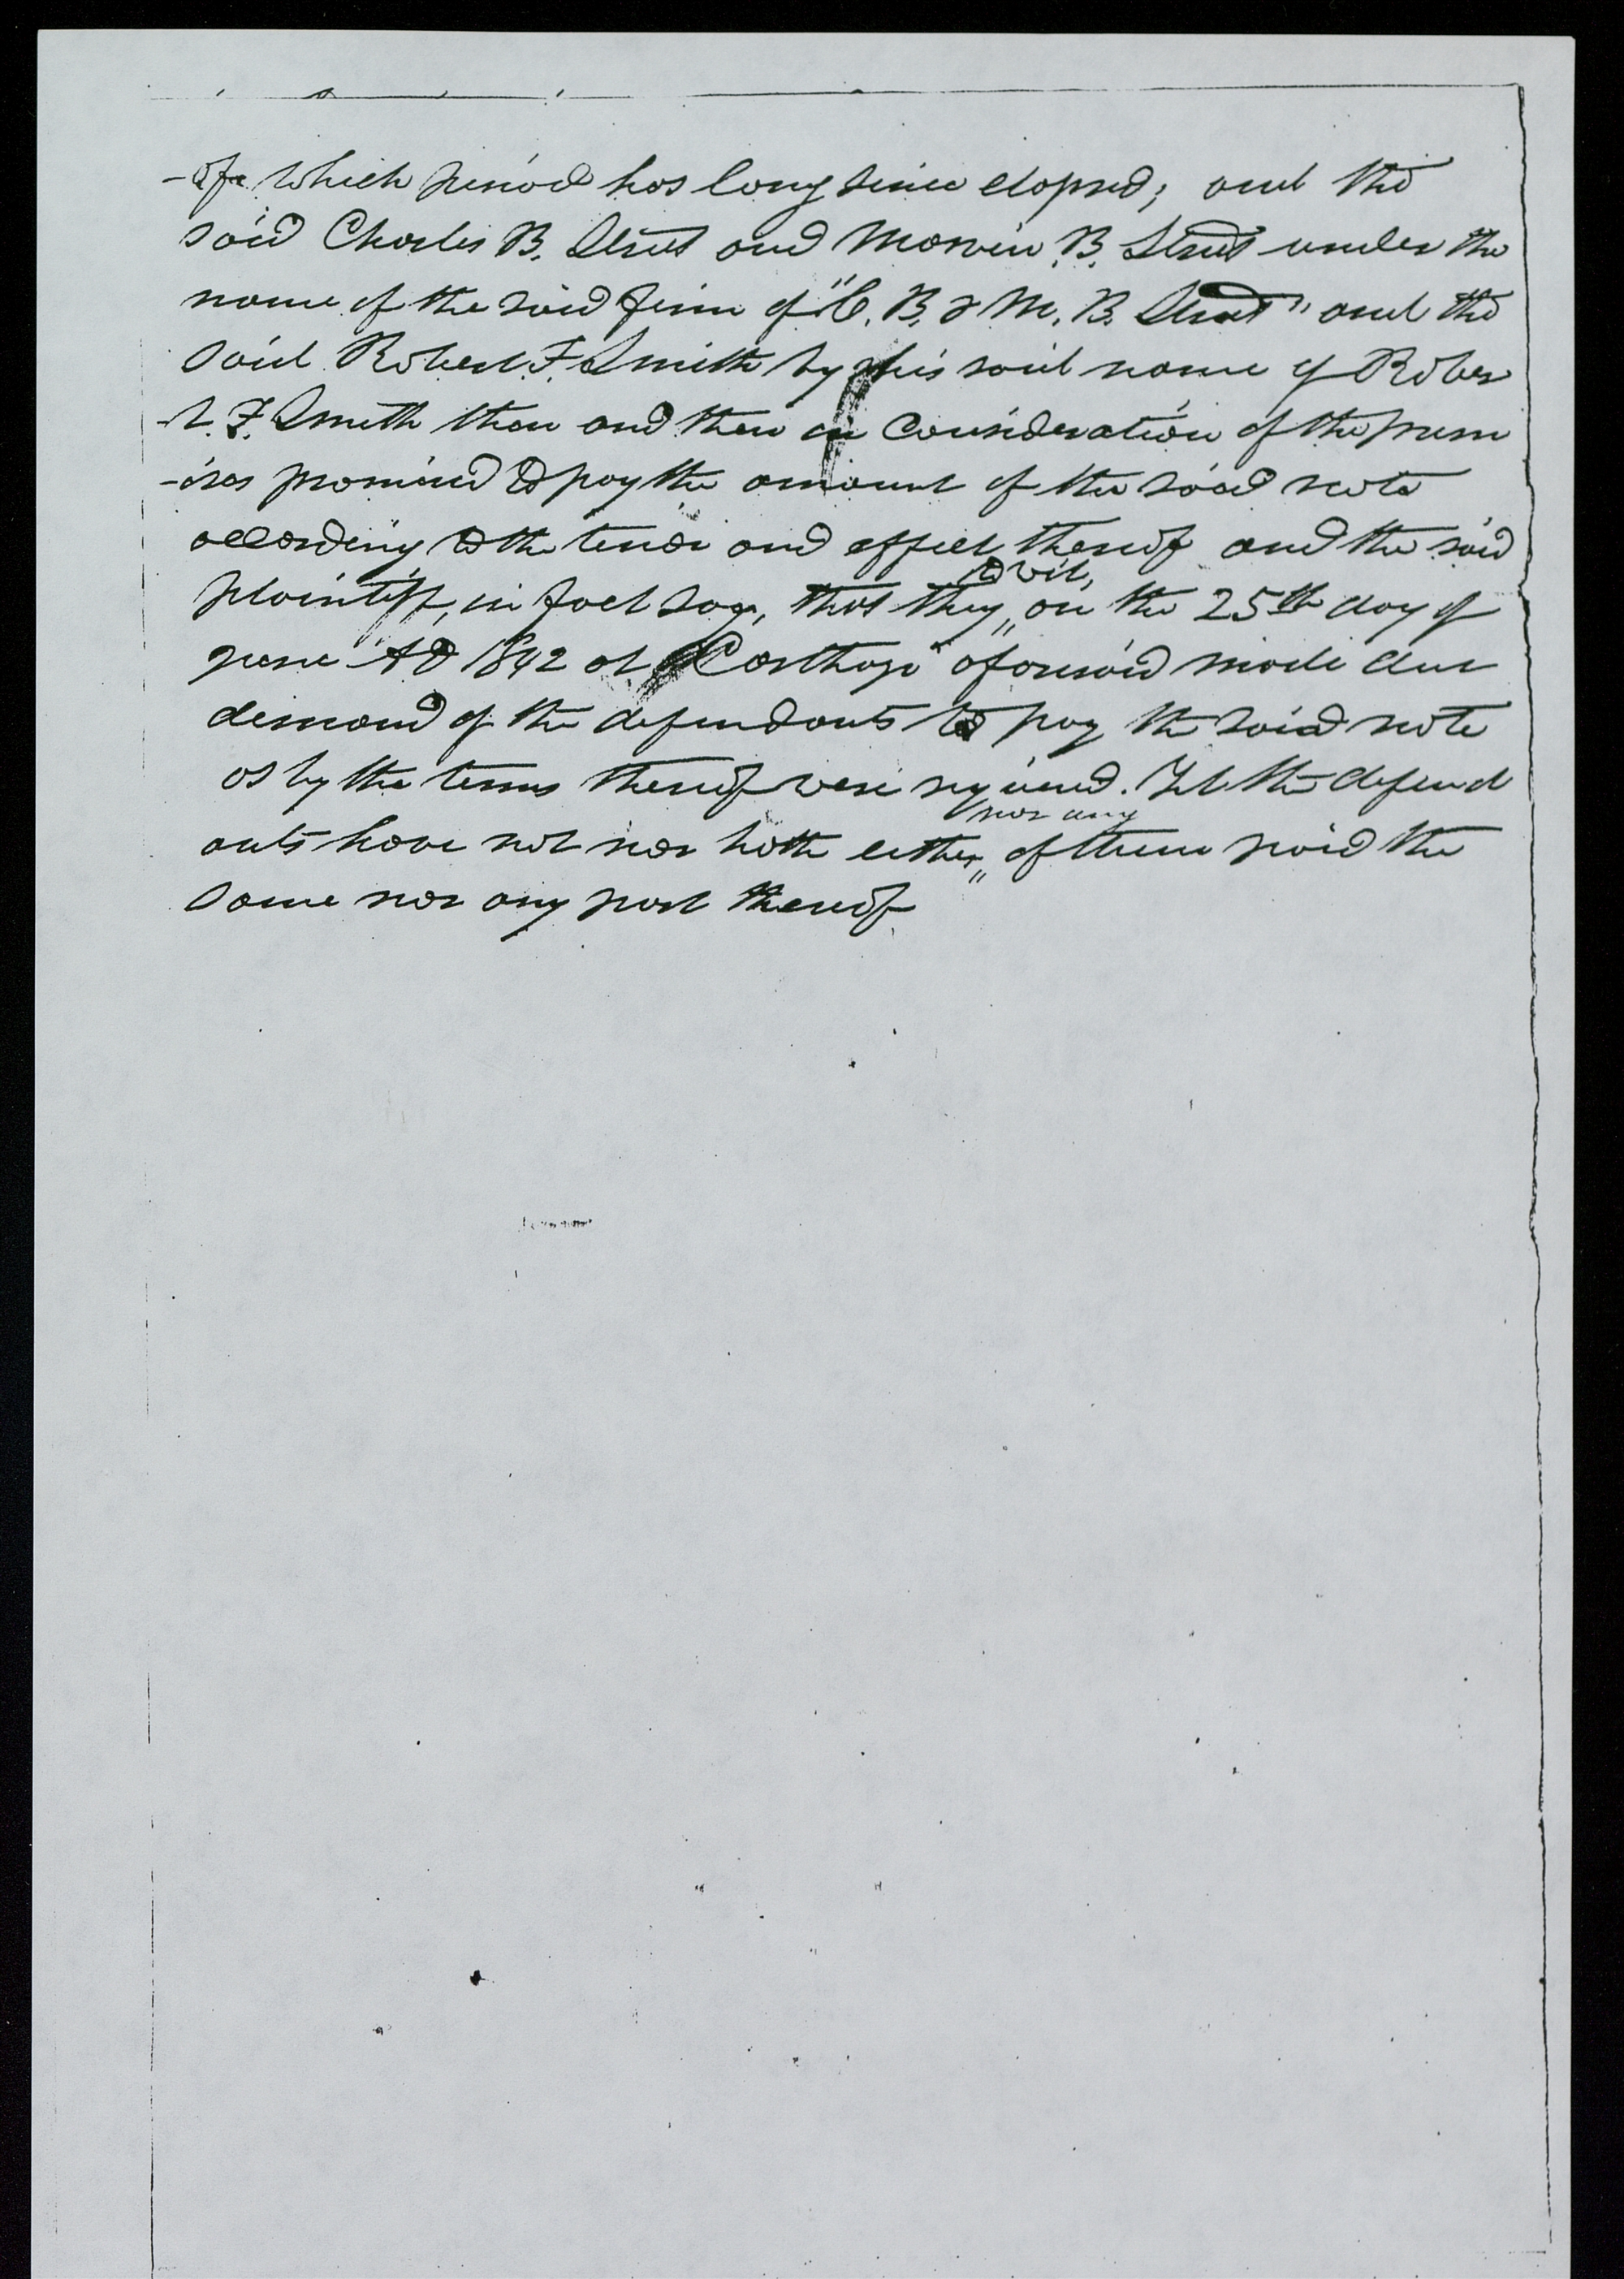 -of which period has long since elapsed; and the
said Charles B. Street and Marvin B. Street under the
name of the said firm of "C. B. & M. B. Street" and the
said Robert F. Smith by his said name of Rober
-t. F. Smith then and there in consideration of the prem
-ises promised to pay the amount of the said note
according to the tenor and effect thereof and the said
to wit,
plaintiff, in fact say, that they,, on the 25th day of
June AD 1842 at Carthage aforesaid made due
demand of the defendants to pay the said note
as by the terms thereof were required. Yet the defend
nor any
ants have not nor hath either,, of them paid the
same nor any part thereof